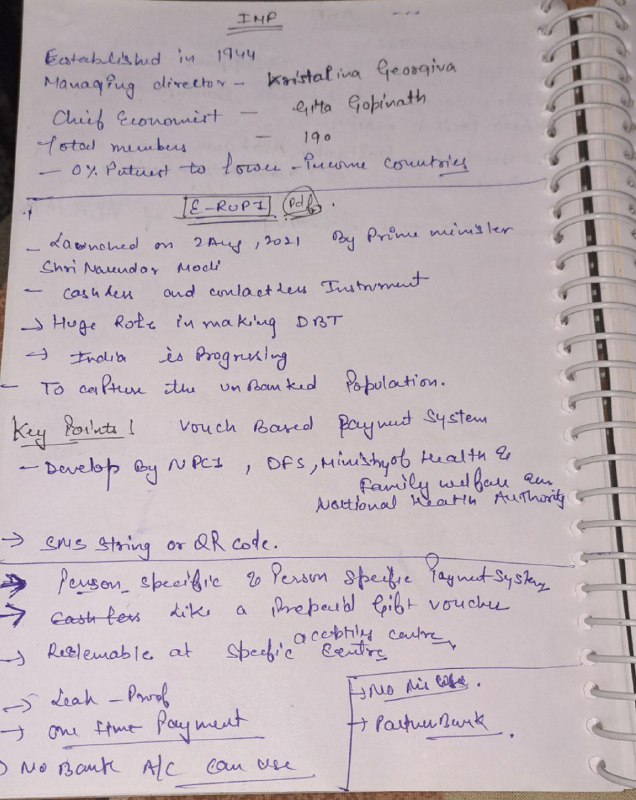 IMP
Established in 1944
Managing director - Kristalina Georgiva
Chief Economist - Gita Gopinath
Total members - 190
- 0% Putrest to lower-Income countries
E-RUPI Pdf
- Launched on 2 Aug, 2021 By Prime minister
Shri Narendar Modi
- cashless and contactless Instrument
→ Huge Role in making DBT
→ India is Progressing
- To capture the unBanked Population.
Key Points! Vouch Based Payment System
- Develop By NPCI, DFS, Ministry of Health &
Family welfare
National Health Authority
→ SMS string or QR code.
→ Person_specific & Person specific Payment System
→ Cashless Like a Prepaid Gift voucher
→ Redeemable at specific accepting centre
Centre
→ Leak-Proof
→ one time Payment
→ No Bank A/C can use
→ No
→ PartnerBank.